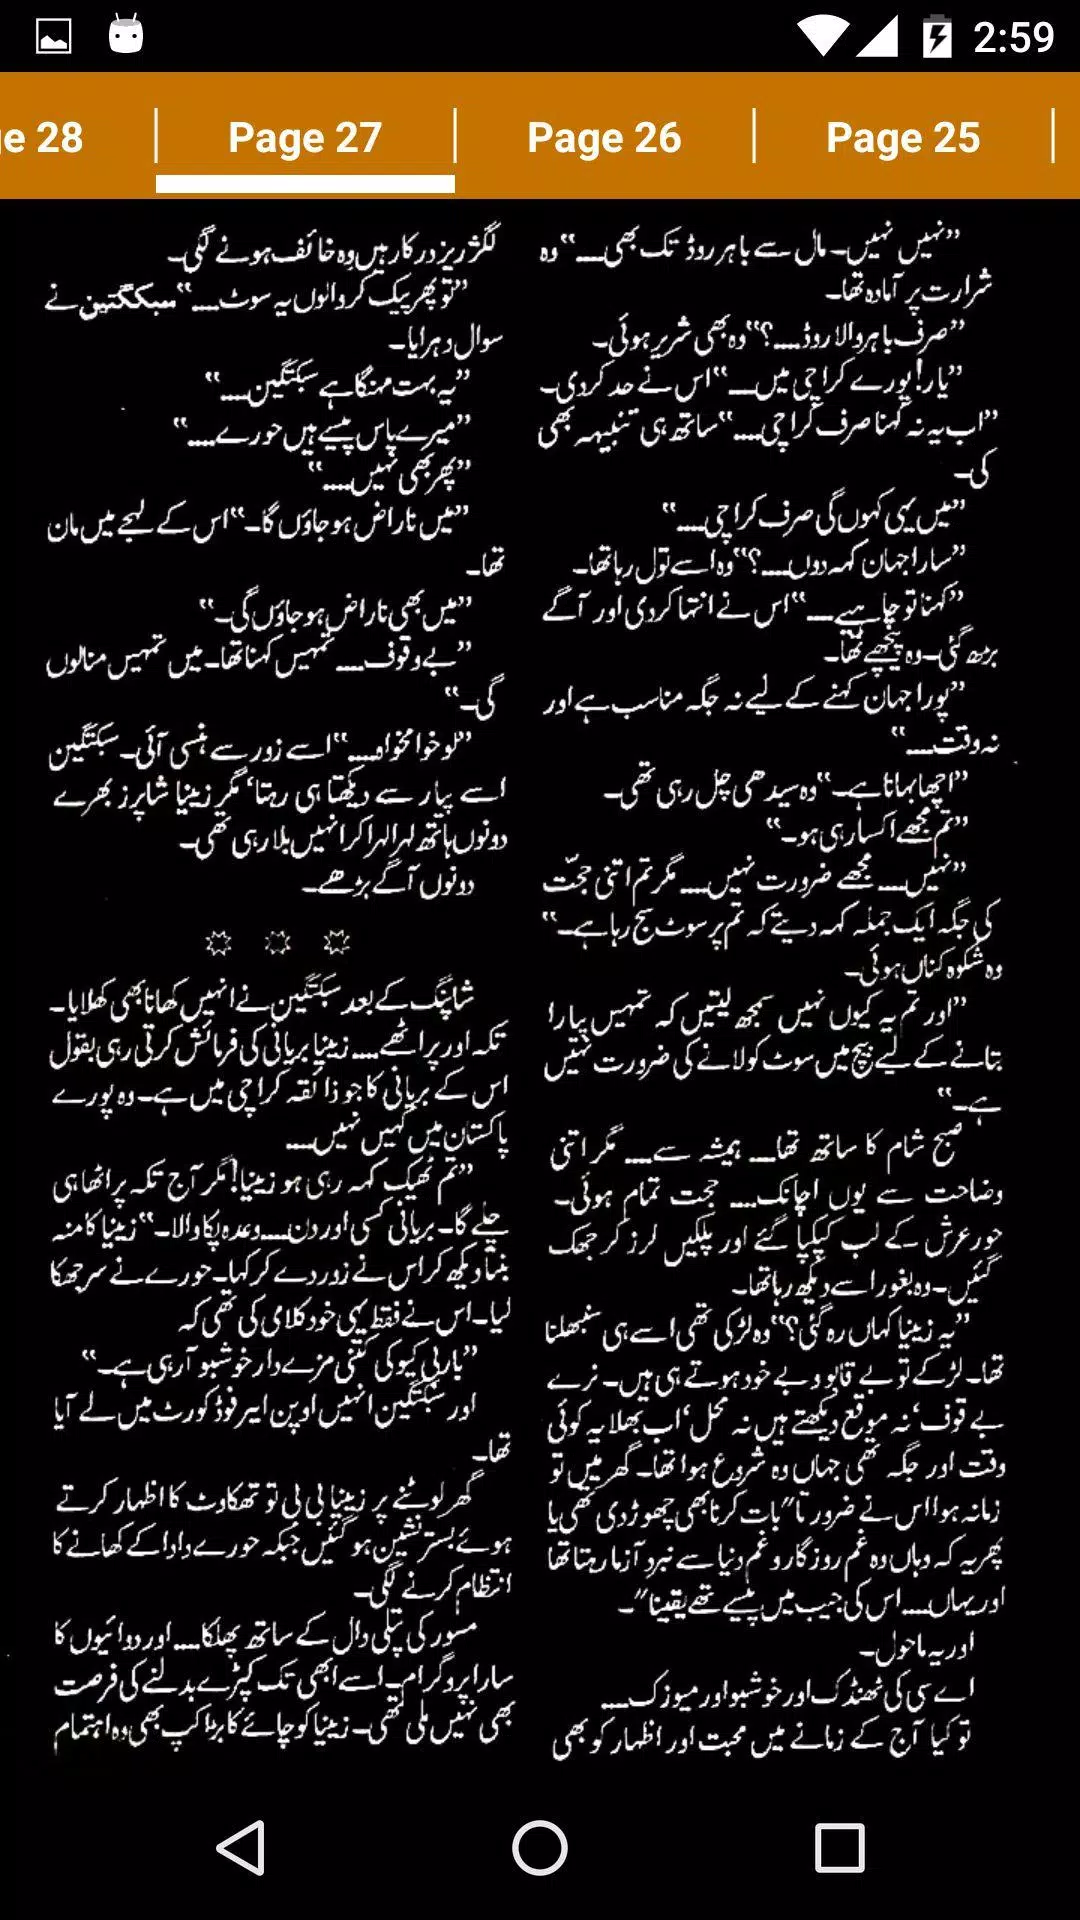 2:59
ge 28
Page 27
Page 26
Page 25
”نہیں نہیں۔ مال سے باہر روڈ تک بھی....“ وہ
شرارت پر آمادہ تھا۔
”صرف باہر والا روڈ....؟“ وہ بھی شریر ہوئی۔
”یار! پورے کراچی میں....“ اس نے حد کردی۔
”اب یہ نہ کہنا صرف کراچی....“ ساتھ ہی تنبیہہ بھی
کی۔
”میں یہی کہوں گی صرف کراچی....“
”سارا جہان کہہ دوں....؟“ وہ اسے تول رہا تھا۔
”کہنا تو چاہیے....“ اس نے انتہا کردی اور آگے
بڑھ گئی۔ وہ پیچھے تھا۔
”پورا جہان کہنے کے لیے نہ جگہ مناسب ہے اور
نہ وقت....“
”اچھا بہانا ہے۔“ وہ سیدھی چل رہی تھی۔
”تم مجھے اکسا رہی ہو۔“
”نہیں.... مجھے ضرورت نہیں.... مگر تم اتنی حجّت
کی جگہ ایک جملہ کہہ دیتے کہ تم پر سوٹ سج رہا ہے۔“
وہ شکوہ کناں ہوئی۔
”اور تم یہ کیوں نہیں سمجھ لیتیں کہ تمہیں پیارا
بتانے کے لیے بیچ میں سوٹ کو لانے کی ضرورت نہیں
ہے۔“
صبح شام کا ساتھ تھا.... ہمیشہ سے.... مگر اتنی
وضاحت سے یوں اچانک.... حجت تمام ہوئی۔
حور عرش کے لب کپکپا گئے اور پلکیں لرز کر جھک
گئیں۔ وہ بغور اسے دیکھ رہا تھا۔
”یہ زینیا کہاں رہ گئی؟“ وہ لڑکی تھی اسے ہی سنبھلنا
تھا۔ لڑکے تو بے قابو و بے خود ہوتے ہی ہیں۔ نرے
بے قوف‘ نہ موقع دیکھتے ہیں نہ محل‘ اب بھلا یہ کوئی
وقت اور جگہ تھی جہاں وہ شروع ہوا تھا۔ گھر میں تو
زمانہ ہوا اس نے ضرورتا” بات کرنا بھی چھوڑ دی تھی یا
پھر یہ کہ وہاں وہ غم روزگار و غم دنیا سے نبرد آزما رہتا تھا
اور یہاں.... اس کی جیب میں پیسے تھے یقینا”۔
اور یہ ماحول۔
اے سی کی ٹھنڈک اور خوشبو اور میوزک....
تو کیا آج کے زمانے میں محبت اور اظہار کو بھی
لگژریز درکار ہیں وہ خائف ہونے لگی۔
”تو پھر پیک کروالوں یہ سوٹ....“ سبکتگین نے
سوال دہرایا۔
”یہ بہت مہنگا ہے سبکتگین....“
”میرے پاس پیسے ہیں حورے....“
”پھر بھی نہیں....“
”میں ناراض ہو جاؤں گا۔“ اس کے لہجے میں مان
تھا۔
”میں بھی ناراض ہو جاؤں گی۔“
”بے وقوف.... تمہیں کہنا تھا۔ میں تمہیں منالوں
گی۔“
”لو خوامخواہ....“ اسے زور سے ہنسی آئی۔ سبکتگین
اسے پیار سے دیکھتا ہی رہتا‘ مگر زینیا شاپرز بھرے
دونوں ہاتھ لہرا لہرا کر انہیں بلا رہی تھی۔
دونوں آگے بڑھے۔
شاپنگ کے بعد سبکتگین نے انہیں کھانا بھی کھلایا۔
تکہ اور پراٹھے.... زینیا بریانی کی فرمائش کرتی رہی بقول
اس کے بریانی کا جو ذائقہ کراچی میں ہے۔ وہ پورے
پاکستان میں کہیں نہیں....
”تم ٹھیک کہہ رہی ہو زینیا! مگر آج تکہ پراٹھا ہی
چلے گا۔ بریانی کسی اور دن.... وعدہ پکا والا۔“ زینیا کا منہ
بنتا دیکھ کر اس نے زور دے کر کہا۔ حورے نے سر جھکا
لیا۔ اس نے فقط یہی خود کلامی کی تھی کہ
”باربی کیو کی کتنی مزے دار خوشبو آرہی ہے۔“
اور سبکتگین انہیں اوپن ایئر فوڈ کورٹ میں لے آیا
تھا۔
گھر لوٹنے پر زینیا بی بی تو تھکاوٹ کا اظہار کرتے
ہوئے بستر نشین ہو گئیں جبکہ حورے دادا کے کھانے کا
انتظام کرنے لگی۔
مسور کی پتلی دال کے ساتھ پھلکا.... اور دوائیوں کا
سارا پروگرام۔ اسے ابھی تک کپڑے بدلنے کی فرصت
بھی نہیں ملی تھی۔ زینیا کو چائے کا بڑا کپ بھی وہ اہتمام